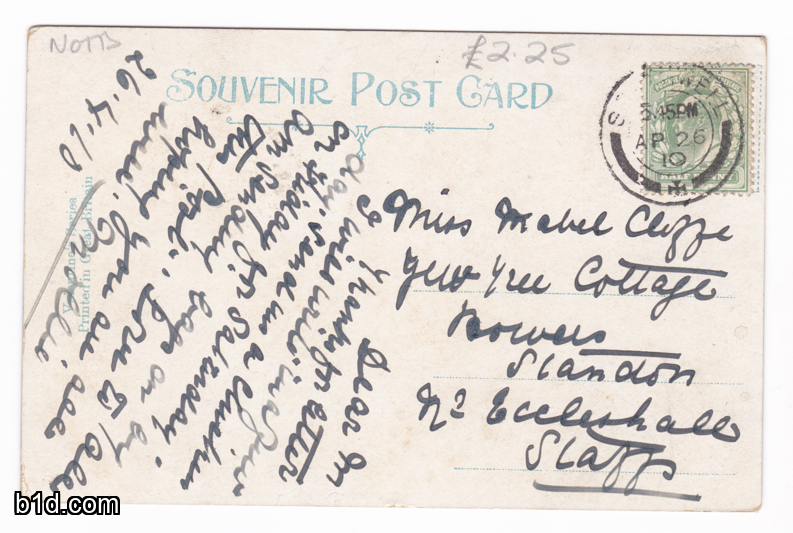 NOTTS
£2.25
SOUVENIR POST CARD
S WELL
5.45PM
AP 26
10
HALF PENNY
Miss Mabel Cliffe
Yew Tree Cottage
Bowers
Standon
Nr Eccleshall
Staffs
Series
Printed in Great Britain
26.4.10
Dear M
Thanks for letter
I will write in a
day. send us a chicken
on Friday for Saturday
am sending on by
this Post. love to all
hoping you are all
well. Nellie
b1d.com